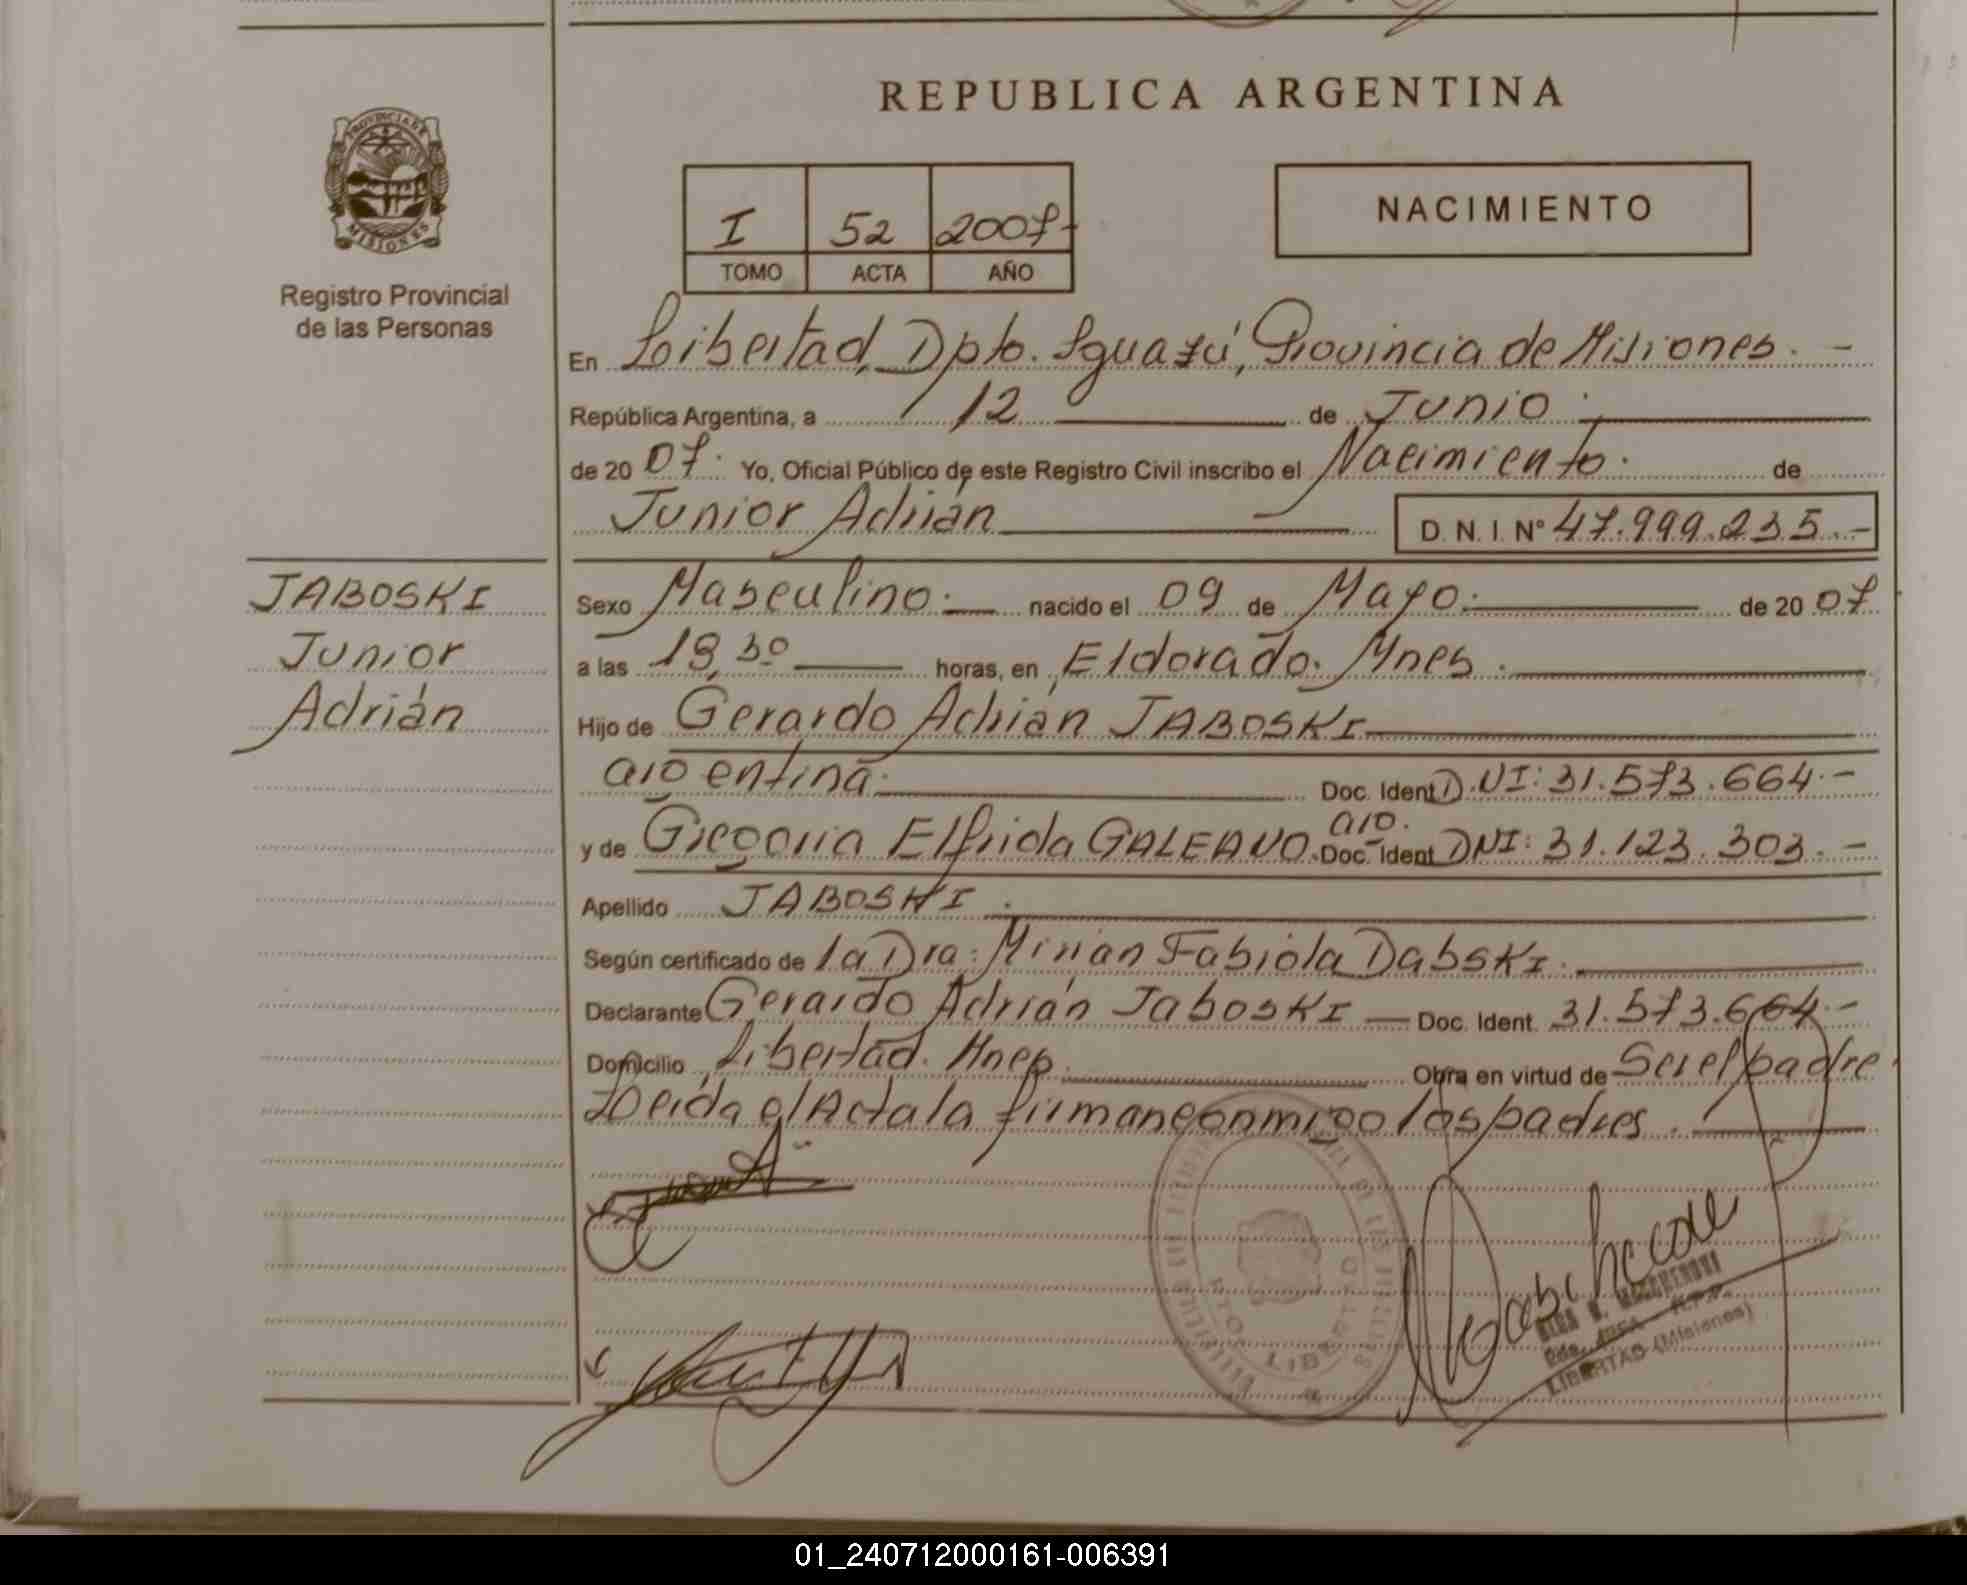 REPUBLICA ARGENTINA
PROVINCIA DE
MISIONES
Registro Provincial
de las Personas
I 52 2007-
TOMO ACTA AÑO
NACIMIENTO
En Libertad, Dpto. Iguazú, Provincia de Misiones. -
República Argentina, a 12 de Junio.
de 20 07. Yo, Oficial Público de este Registro Civil inscribo el Nacimiento. de
Junior Adrián D. N. I. Nº 47.999.235.-
JABOSKI
Junior
Adrián
Sexo Masculino. nacido el 09 de Mayo. de 20 07
a las horas, en Eldorado. Mnes.
Hijo de Gerardo Adrián JABOSKI
argentina. Doc. Ident D.NI: 31.573.664.-
arg.
y de Gregoria Elfrida GALEANO. Doc. Ident DNI: 31.123.303.-
Apellido JABOSKI.
Según certificado de la Dra: Mirian Fabiola Dabski.
Declarante Gerardo Adrián JaboskI Doc. Ident. 31.573.664.-
Domicilio Libertad. Mnes. Obra en virtud de Ser el padre.
Leida el Acta la firman conmigo los padres.
LIBERTAD
LIBERTAD (Misiones)
01_240712000161-006391